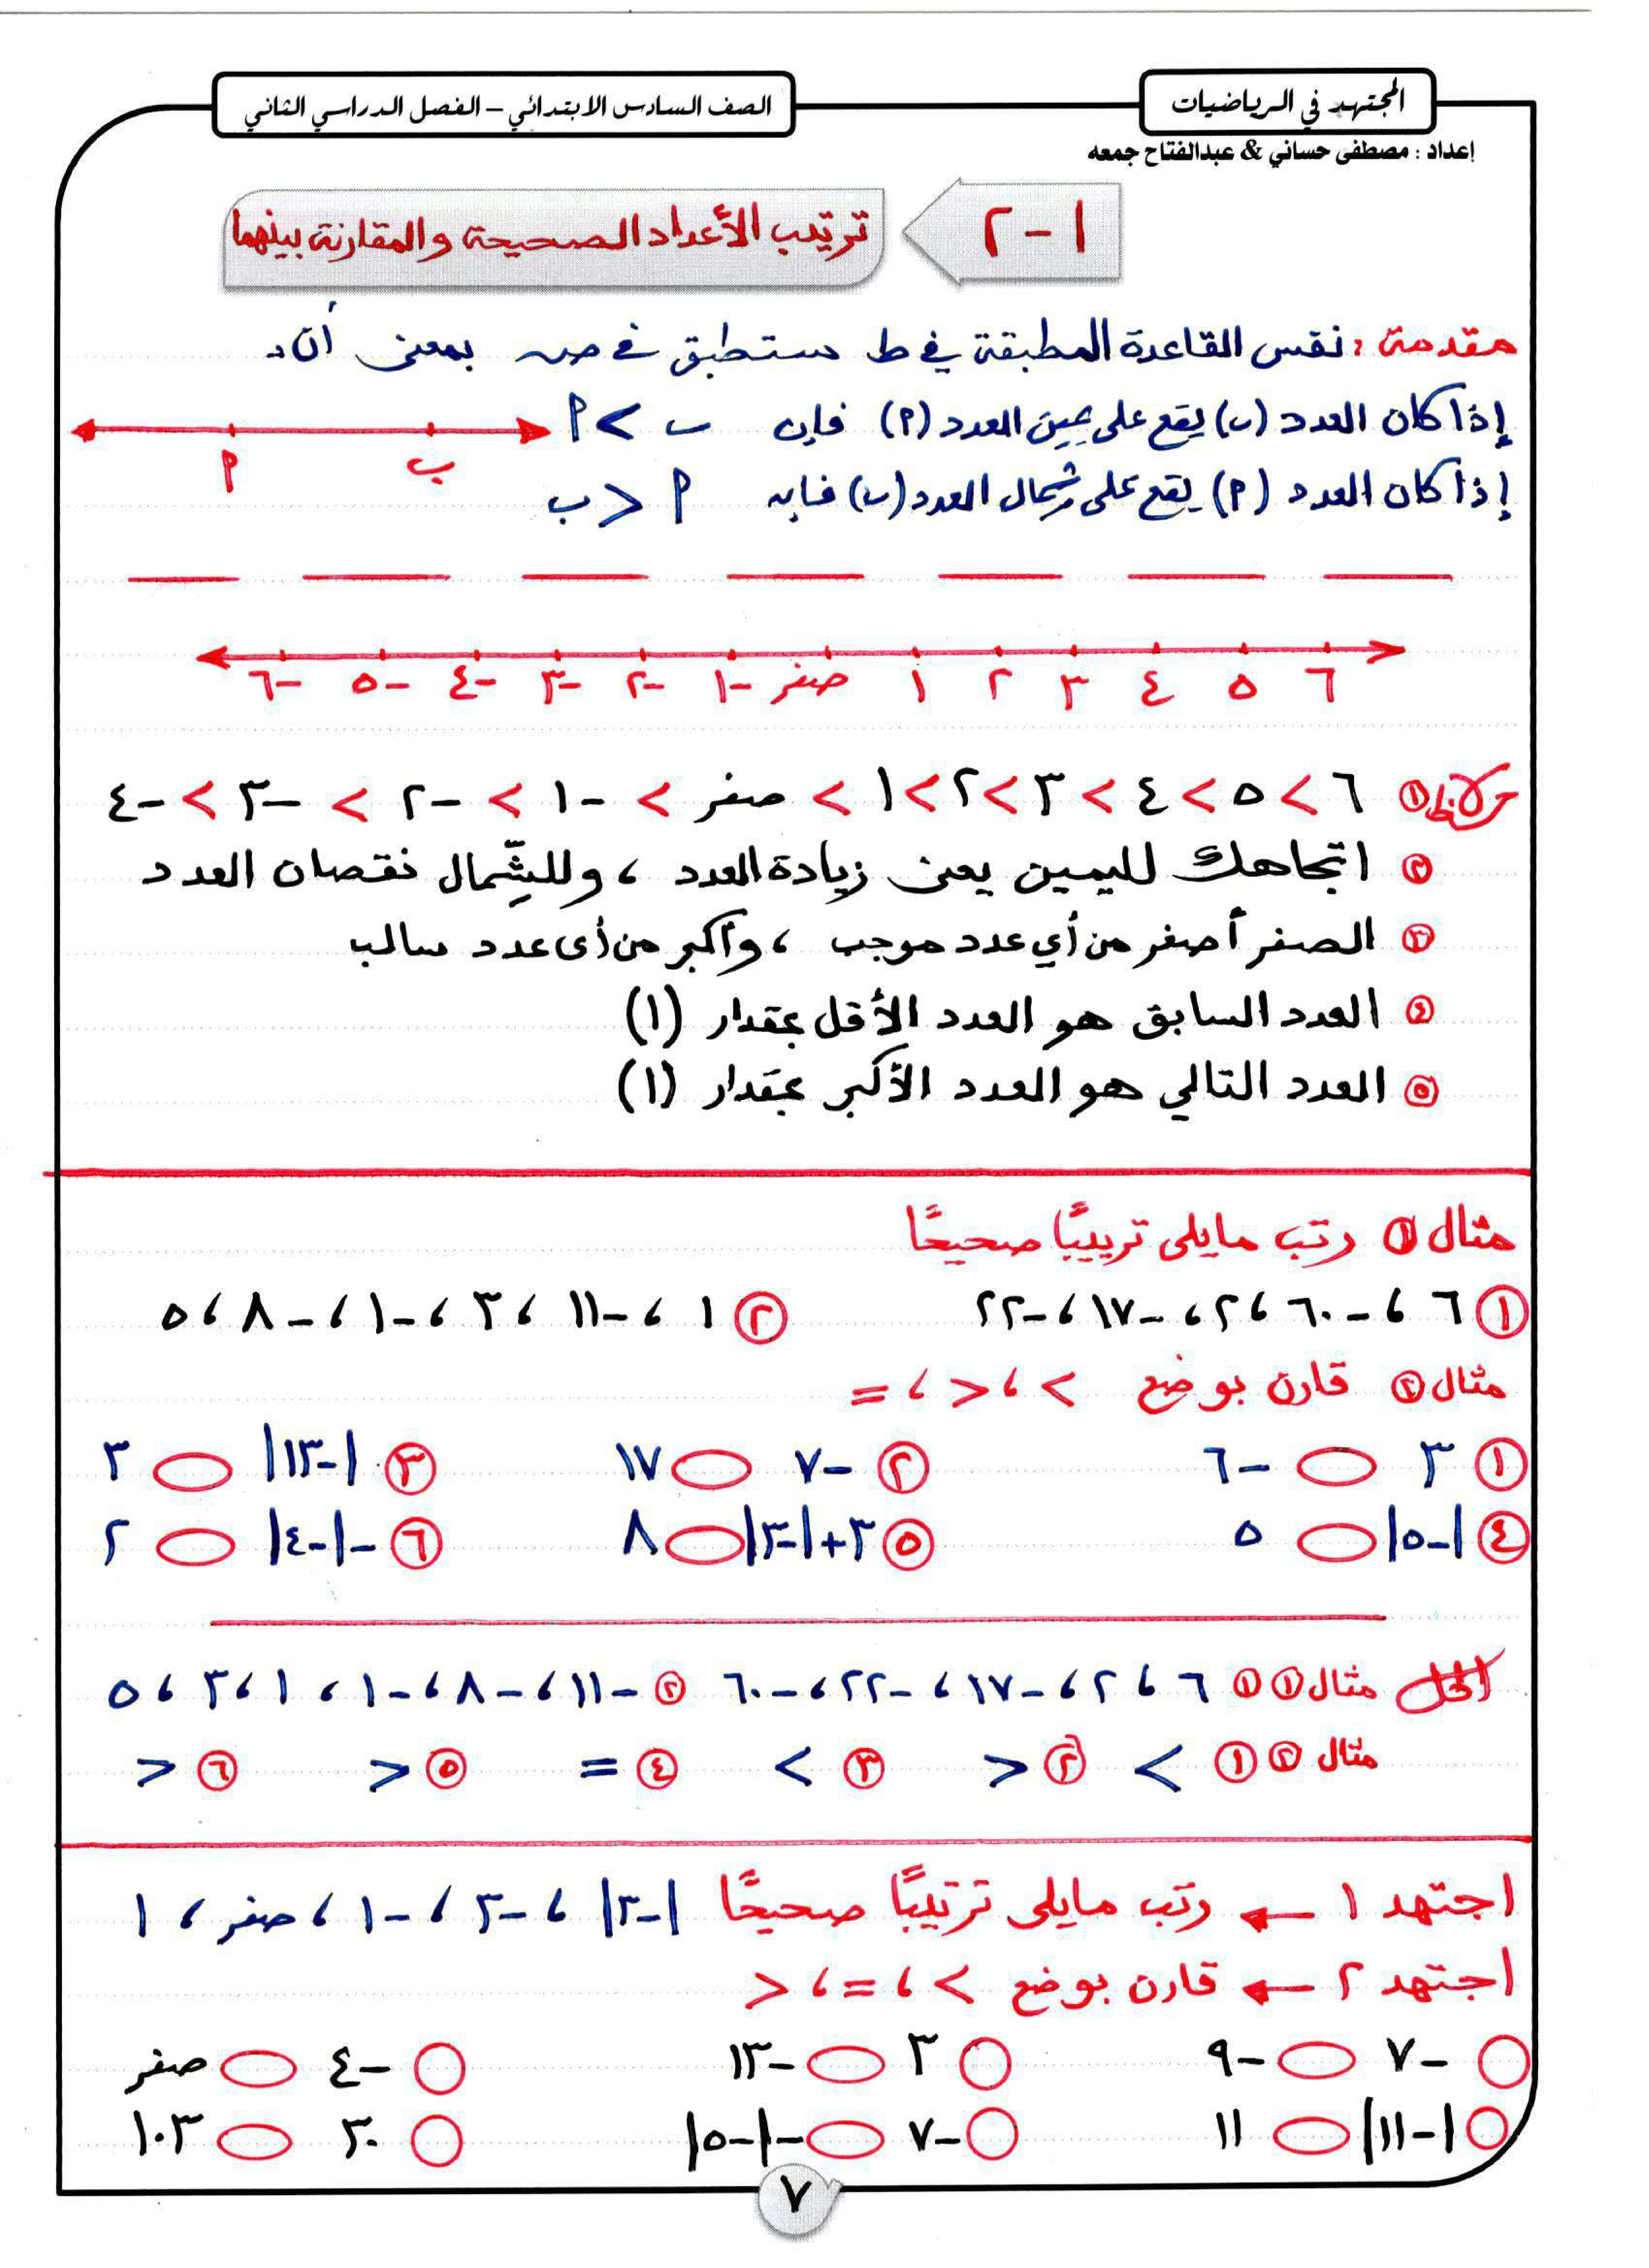 المجتهد في الرياضيات
الصف السادس الابتدائي – الفصل الدراسي الثاني
إعداد : مصطفى حساني & عبدالفتاح جمعه
١-٢
ترتيب الأعداد الصحيحة والمقارنة بينهما
مقدمة : نفس القاعدة المطبقة في ط ستطبق في صـ بمعنى أن :
إذا كان العدد (ب) يقع على يمين العدد (٢) فإن ب > ٢
٢ ب
إذا كان العدد (٢) يقع على شمال العدد (ب) فإن ٢ < ب
-٦ -٥ -٤ -٣ -٢ -١ صفر ١ ٢ ٣ ٤ ٥ ٦
ملاحظ ① ٦ > ٥ > ٤ > ٣ > ٢ > ١ > صفر > -١ > -٢ > -٣ > -٤
② اتجاهك لليمين يعنى زيادة العدد ، وللشِّمال نقصان العدد
③ الصفر أصغر من أي عدد موجب ، وأكبر من أى عدد سالب
④ العدد السابق هو العدد الأقل بمقدار (١)
⑤ العدد التالي هو العدد الأكبر بمقدار (١)
مثال ① رتب مايلى ترتيبًا صحيحًا
① ٦ ، -٦٠ ، ٢ ، -١٧ ، -٢٢ ② ١ ، -١١ ، ٣ ، -١ ، -٨ ، ٥
مثال ② قارن بوضع > ، < ، =
① ٣ -٦ ② -٧ ١٧ ③ |-١٣| ٣
④ |-٥| ٥ ⑤ ٣+|-٣| ٨ ⑥ -|-٤| ٢
الحل مثال ① ① ٦ ، ٢ ، -١٧ ، -٢٢ ، -٦٠ ② -١١ ، -٨ ، -١ ، ١ ، ٣ ، ٥
مثال ② ① > ② < ③ > ④ = ⑤ < ⑥ <
اجتهد ١ ← رتب مايلى ترتيبًا صحيحًا |-٣| ، -٣ ، -١ ، صفر ، ١
اجتهد ٢ ← قارن بوضع > ، = ، <
-٧ -٩ ٣ -١٣ -٤ صفر
|-١١| ١١ -٧ -|-٥| ٣٠ ١٠٣
٧